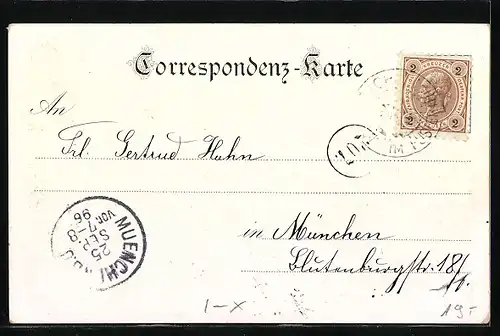 Correspondenz-Karte
2 KREUZER 2
2 2
IM
An
Frl. Gertrud Huhn
MUENCHEN
25
SEP
VOR. 7-8
96
in München
Blutenburgstr. 18/1.
I-X
19.-